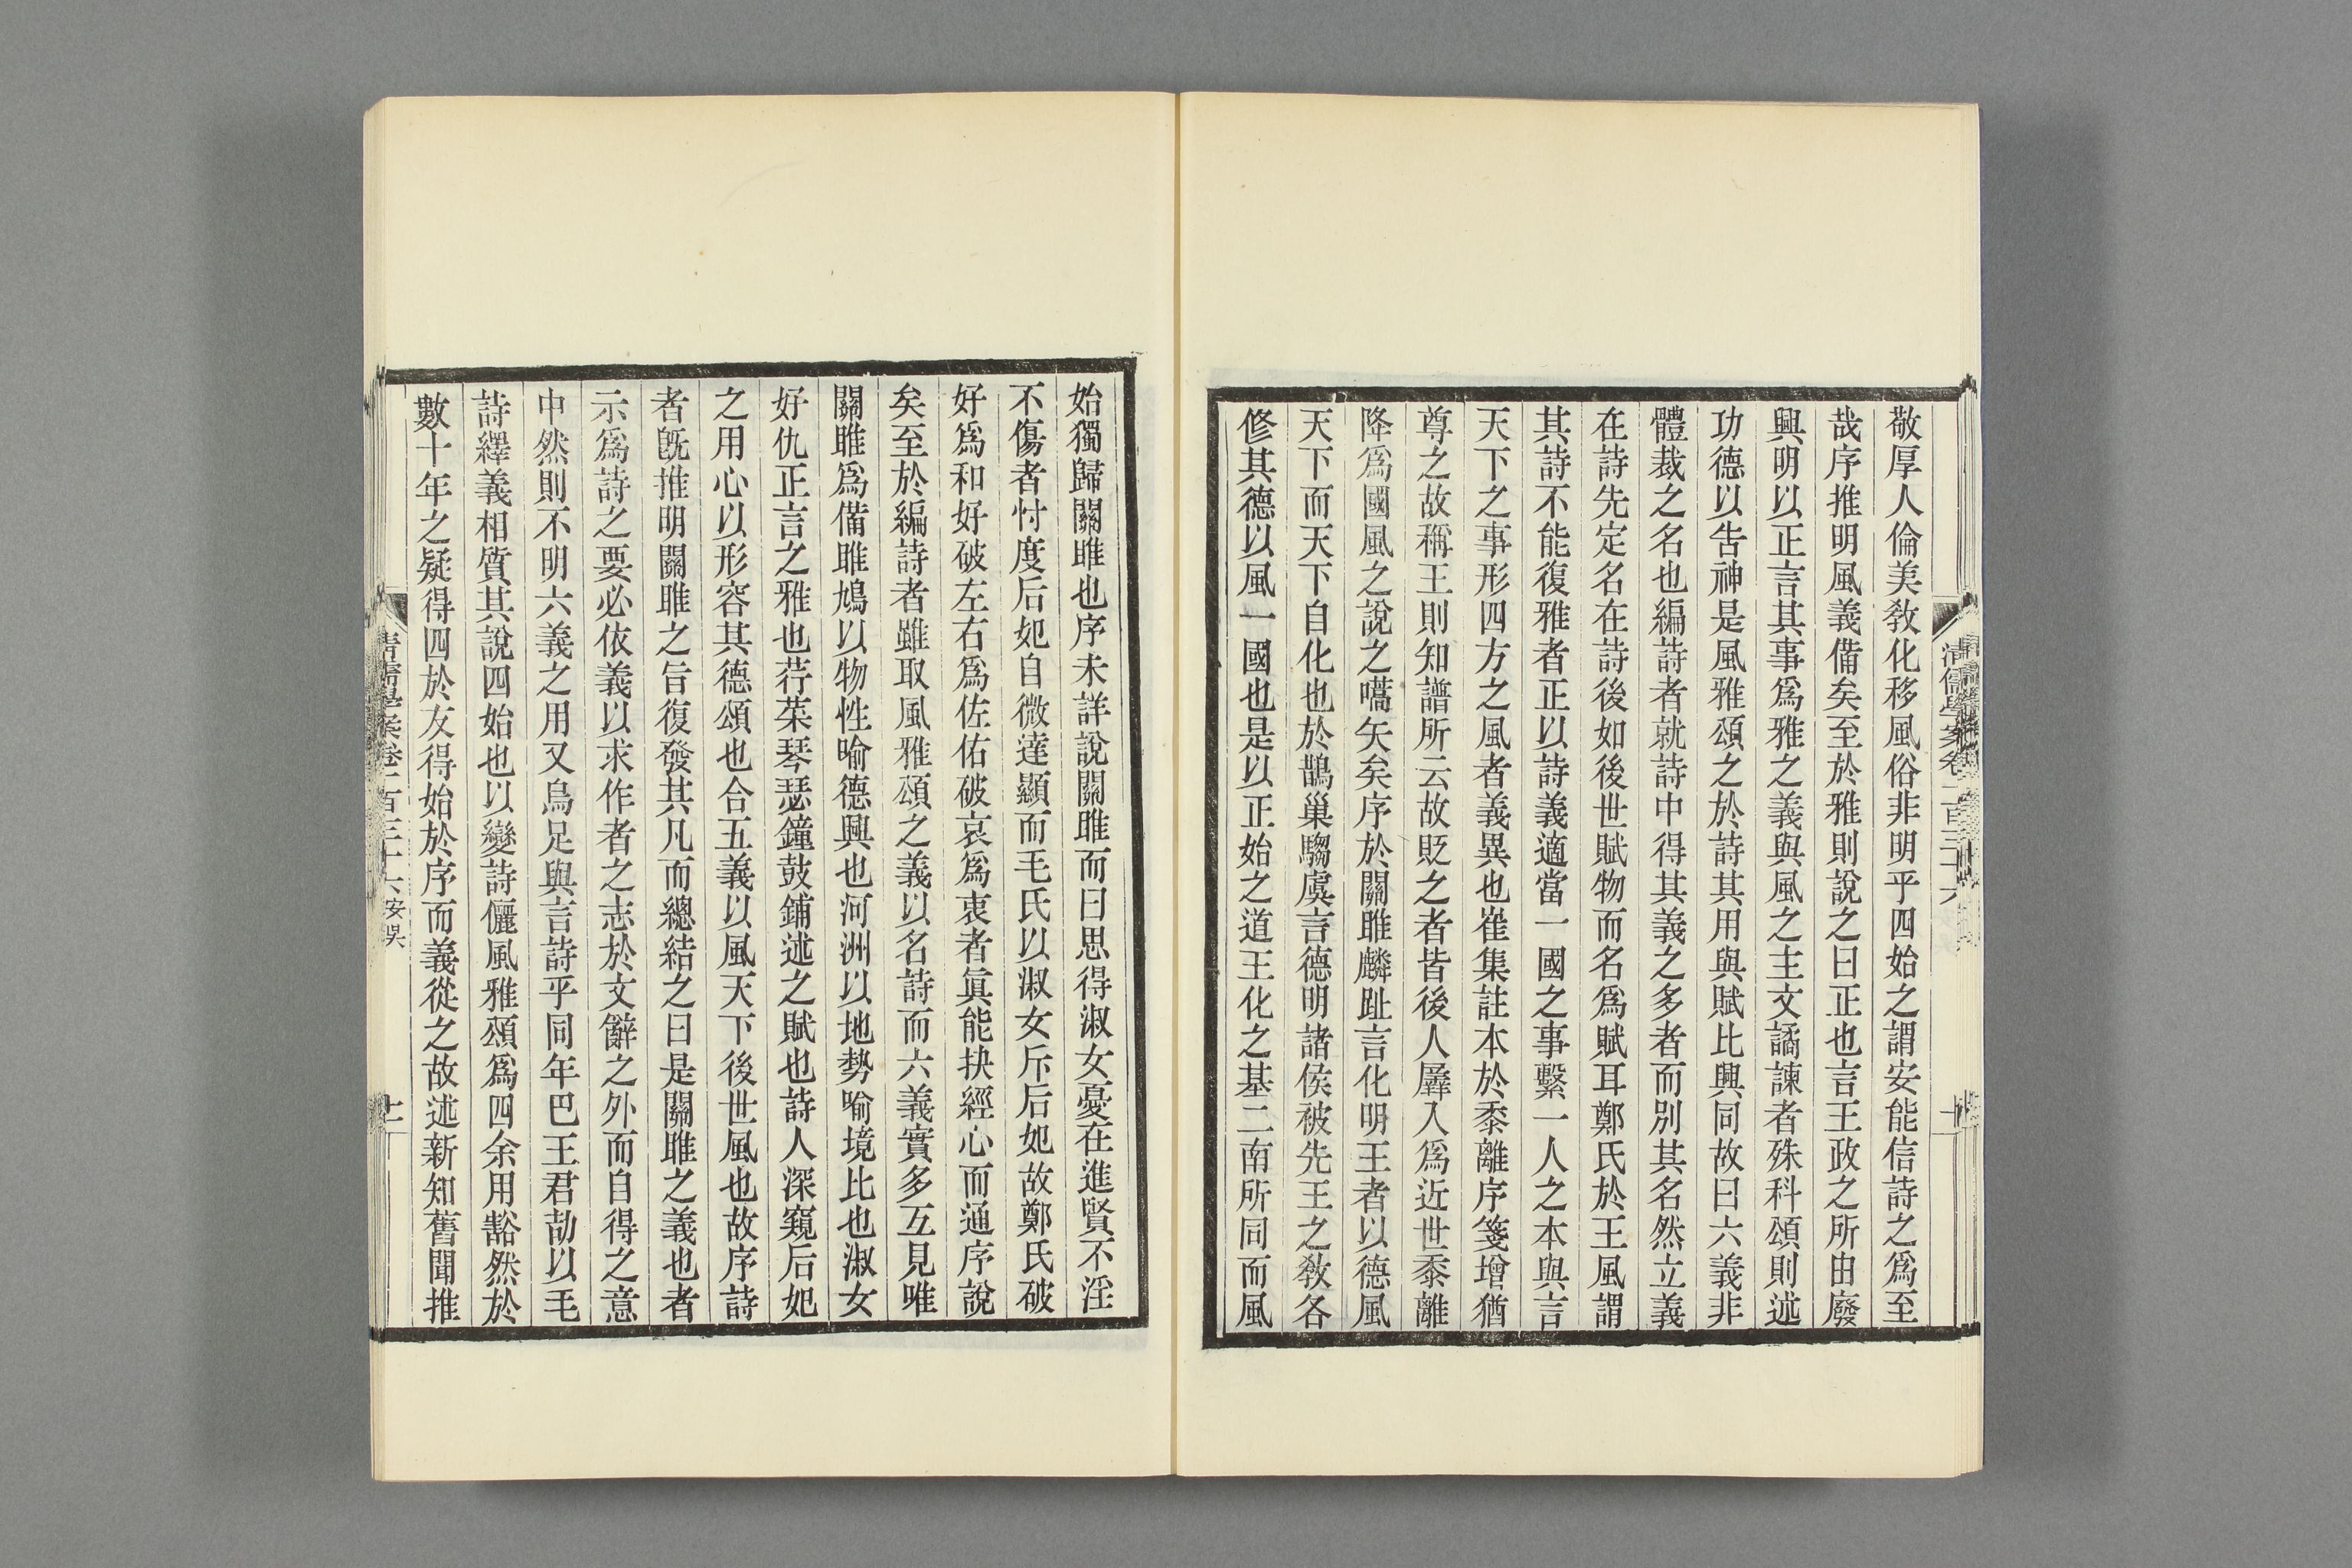 敬厚人倫美敎化移風俗非明乎四始之謂安能信詩之爲至
哉序推明風義備矣至於雅則說之曰正也言王政之所由廢
興明以正言其事爲雅之義與風之主文譎諫者殊科頌則述
功德以告神是風雅頌之於詩其用與賦比興同故曰六義非
體裁之名也編詩者就詩中得其義之多者而別其名然立義
在詩先定名在詩後如後世賦物而名爲賦耳鄭氏於王風謂
其詩不能復雅者正以詩義適當一國之事繫一人之本與言
天下之事形四方之風者義異也崔集註本於黍離序箋增猶
尊之故稱王則知譜所云故貶之者皆後人羼入爲近世黍離
降爲國風之說之嚆矢矣序於關雎麟趾言化明王者以德風
天下而天下自化也於鵲巢騶虞言德明諸侯被先王之敎各
修其德以風一國也是以正始之道王化之基二南所同而風
始獨歸關雎也序未詳說關雎而曰思得淑女憂在進賢不淫
不傷者忖度后妃自微達顯而毛氏以淑女斥后妃故鄭氏破
好爲和好破左右爲佐佑破哀爲衷者眞能抉經心而通序說
矣至於編詩者雖取風雅頌之義以名詩而六義實多互見唯
關雎爲備雎鳩以物性喻德興也河洲以地勢喻境比也淑女
好仇正言之雅也荇菜琴瑟鐘鼓鋪述之賦也詩人深窺后妃
之用心以形容其德頌也合五義以風天下後世風也故序詩
者旣推明關雎之旨復發其凡而總結之曰是關雎之義也者
示爲詩之要必依義以求作者之志於文辭之外而自得之意
中然則不明六義之用又烏足與言詩乎同年巴王君劼以毛
詩繹義相質其說四始也以變詩儷風雅頌爲四余用豁然於
數十年之疑得四於友得始於序而義從之故述新知舊聞推
清儒學案卷一百三十六 安吳
十一